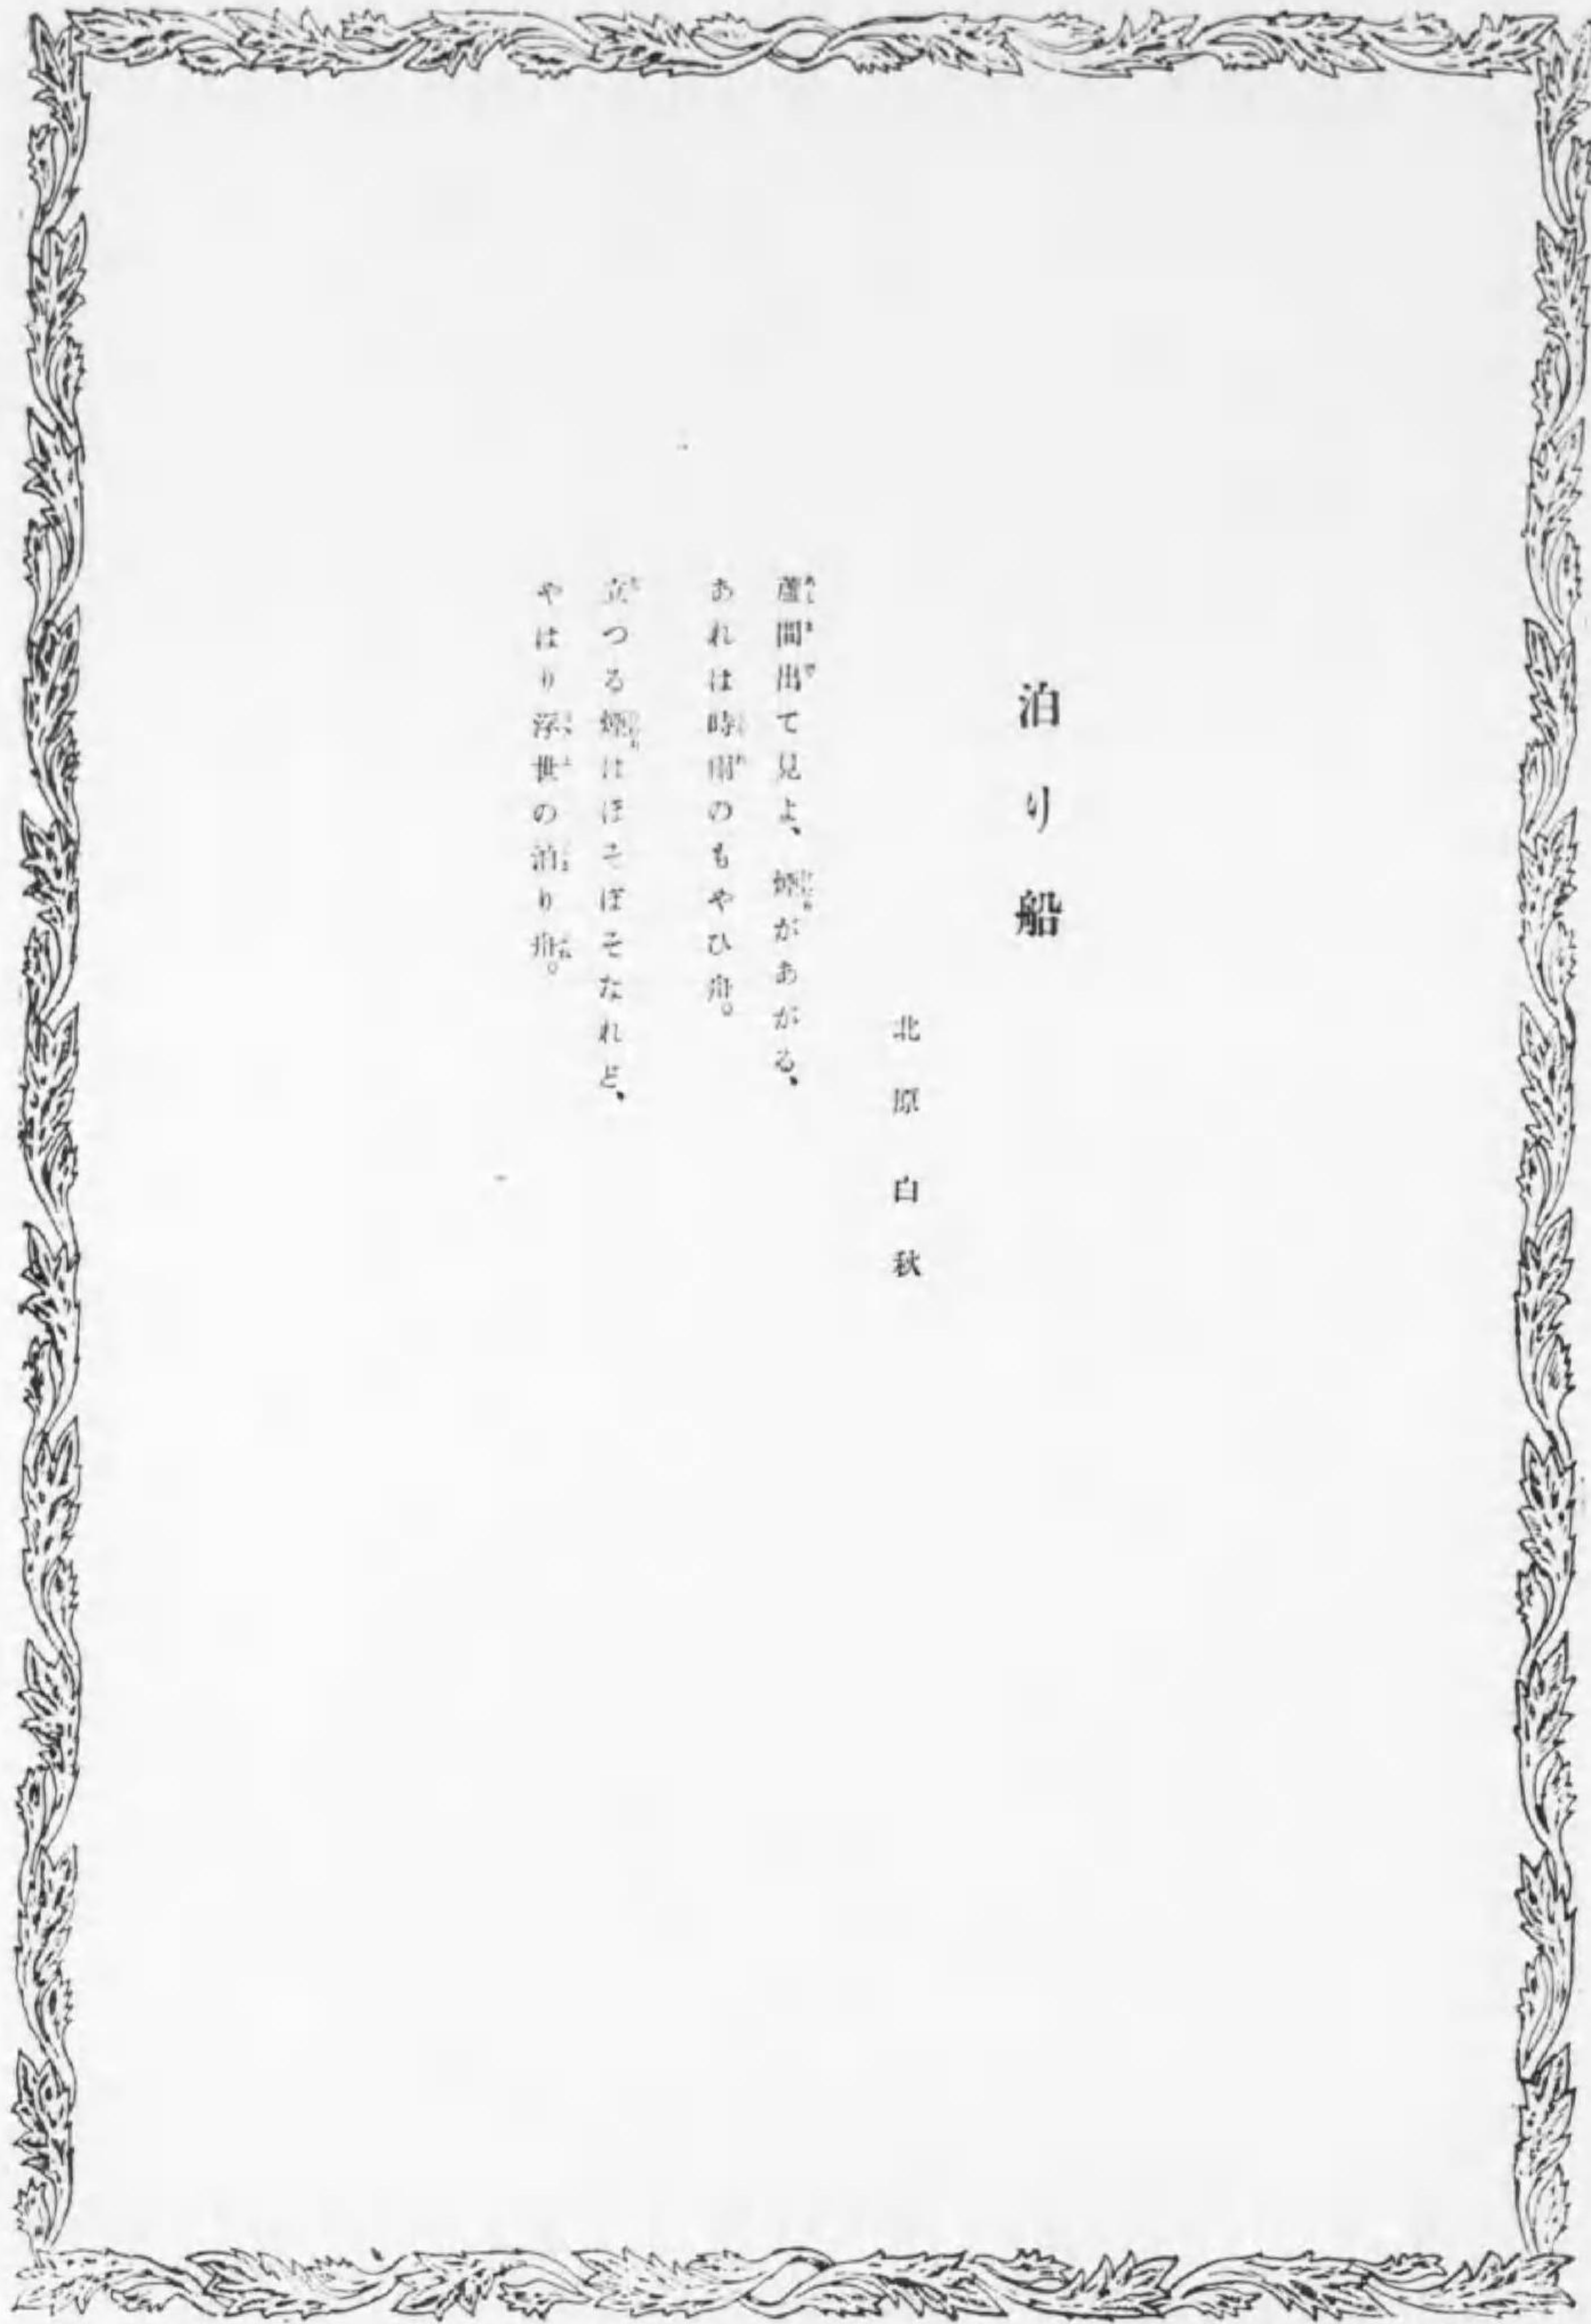 泊り船
北原白秋
蘆間出て見よ、煙があがる、
あれは時雨のもやひ舟。
立つる煙はほそぼそなれど、
やはり浮世の泊り舟。